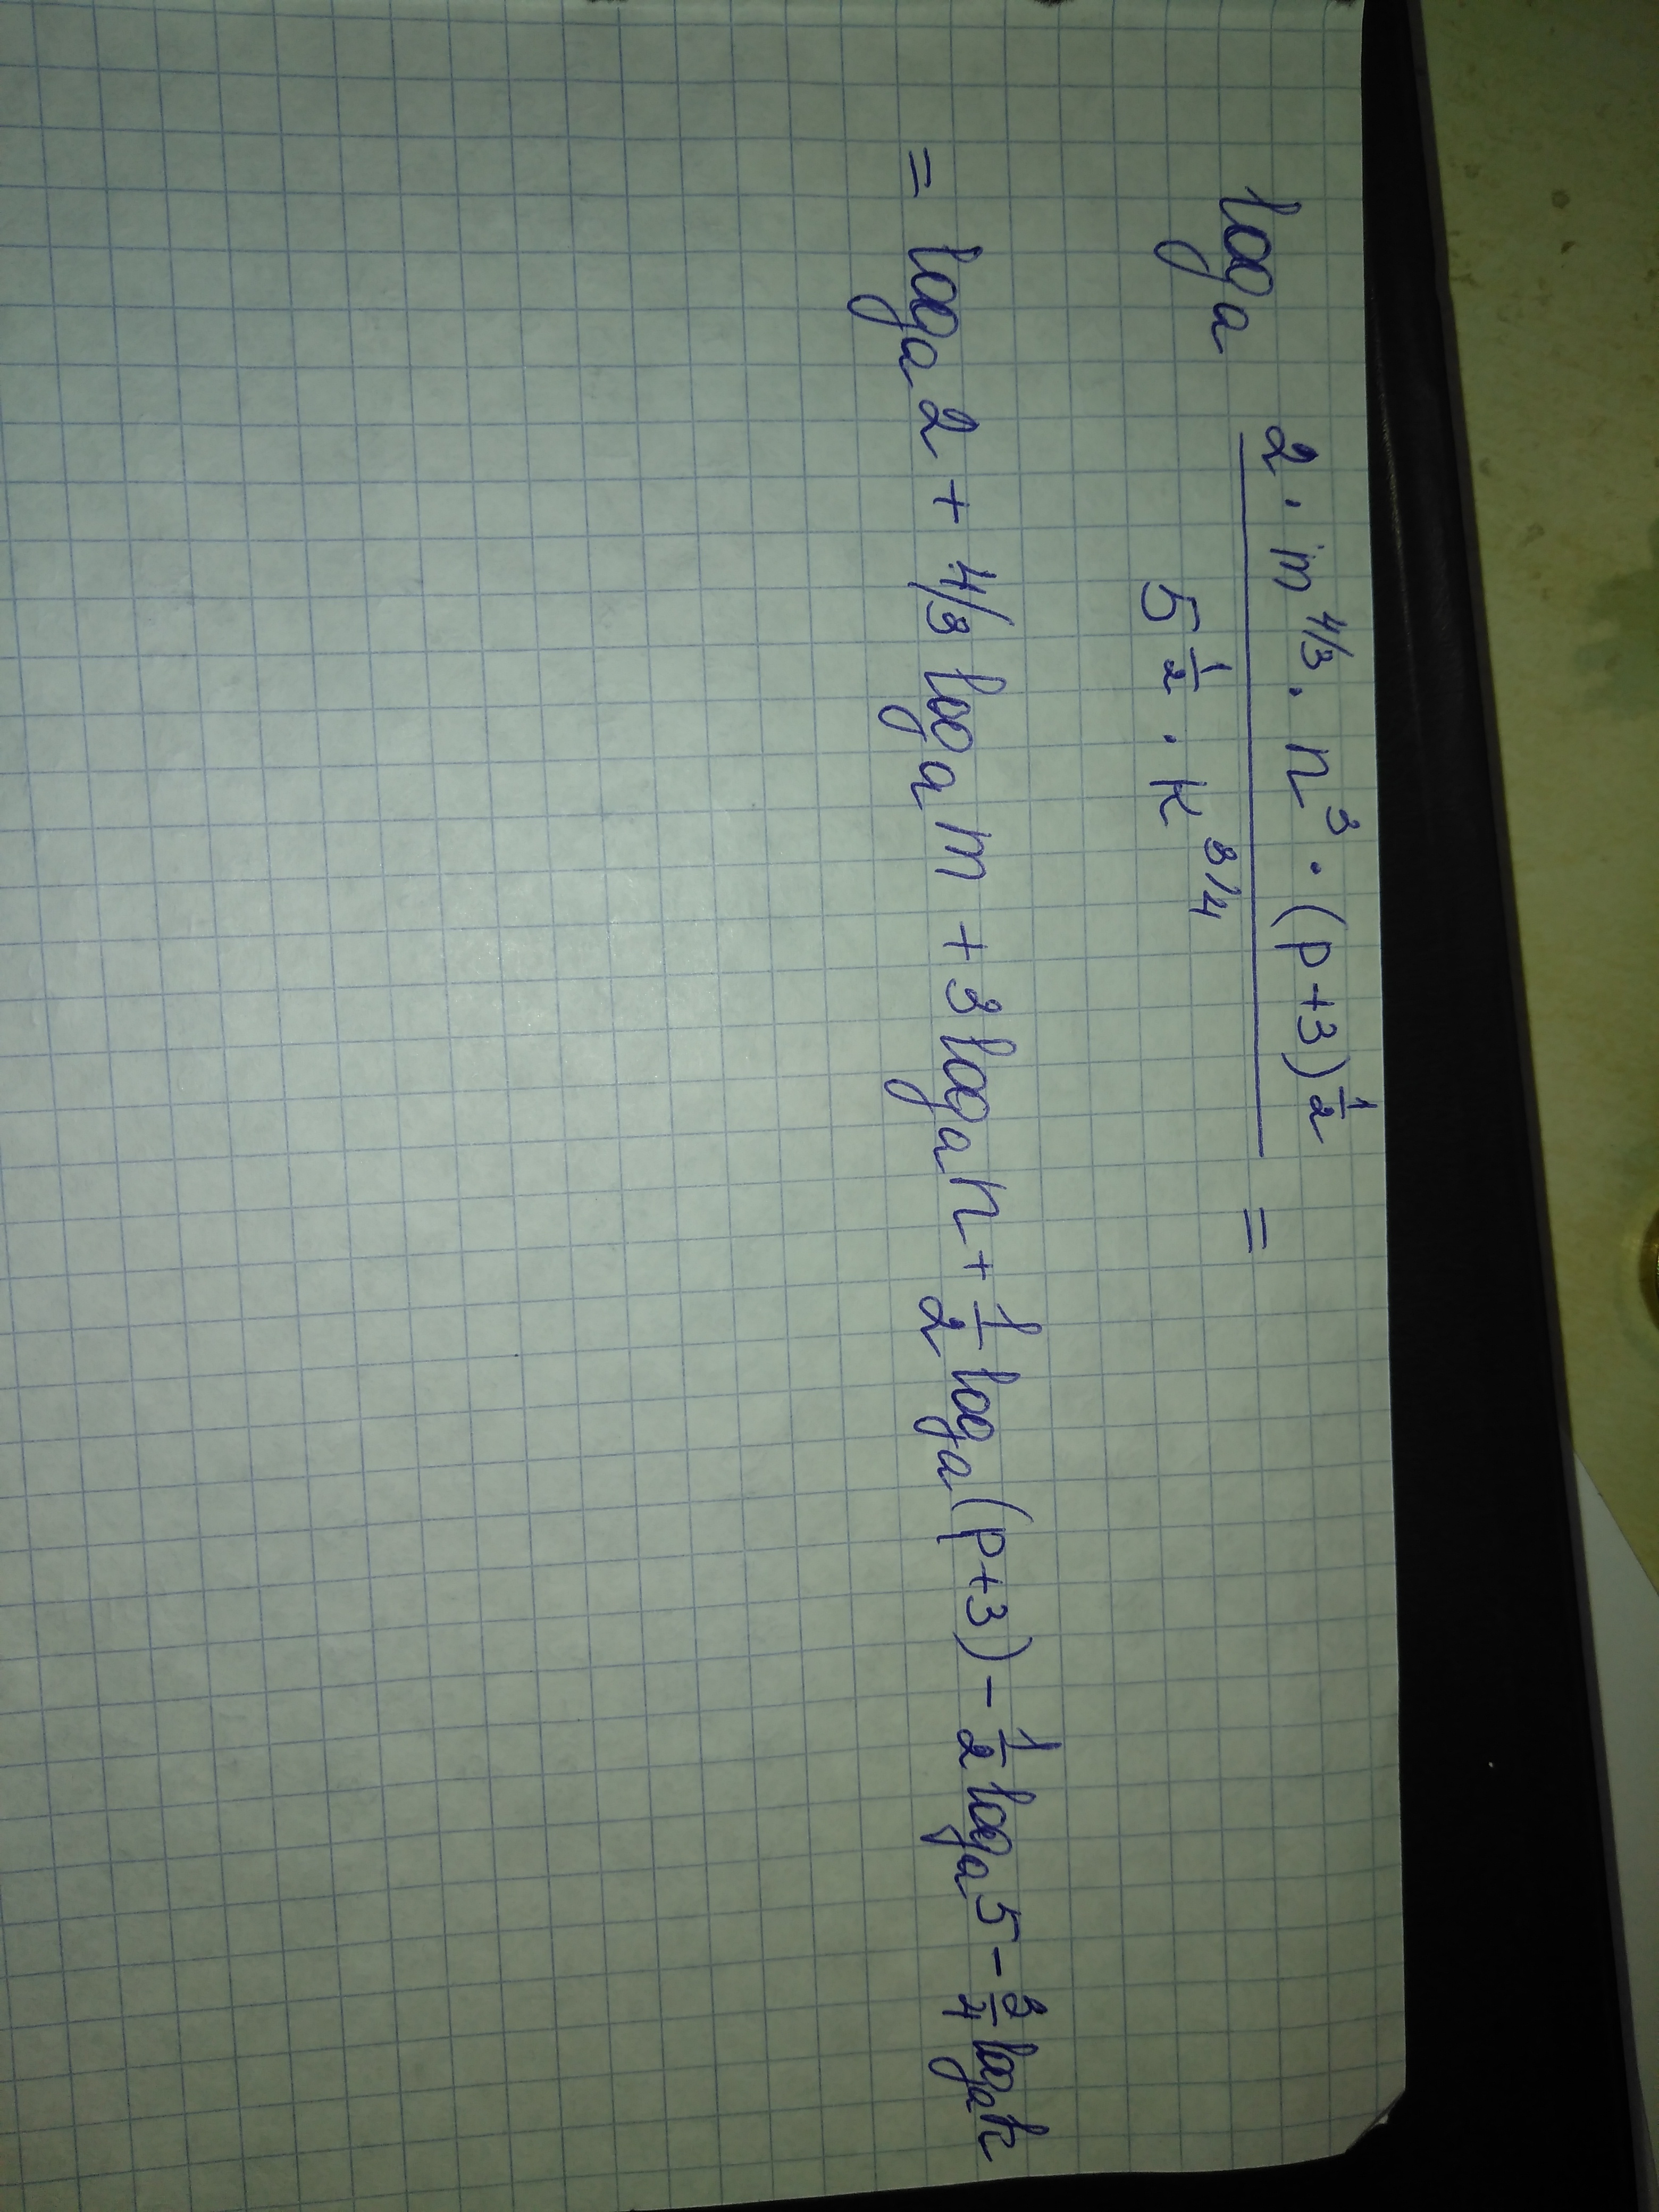 log_a \frac{2 · m^{4/3} · n^3 · (p+3)^{\frac{1}{2}}}{5^{\frac{1}{2}} · k^{3/4}} =
= log_a 2 + 4/3 log_a m + 3 log_a n + \frac{1}{2} log_a (p+3) - \frac{1}{2} log_a 5 - \frac{3}{4} log_a k